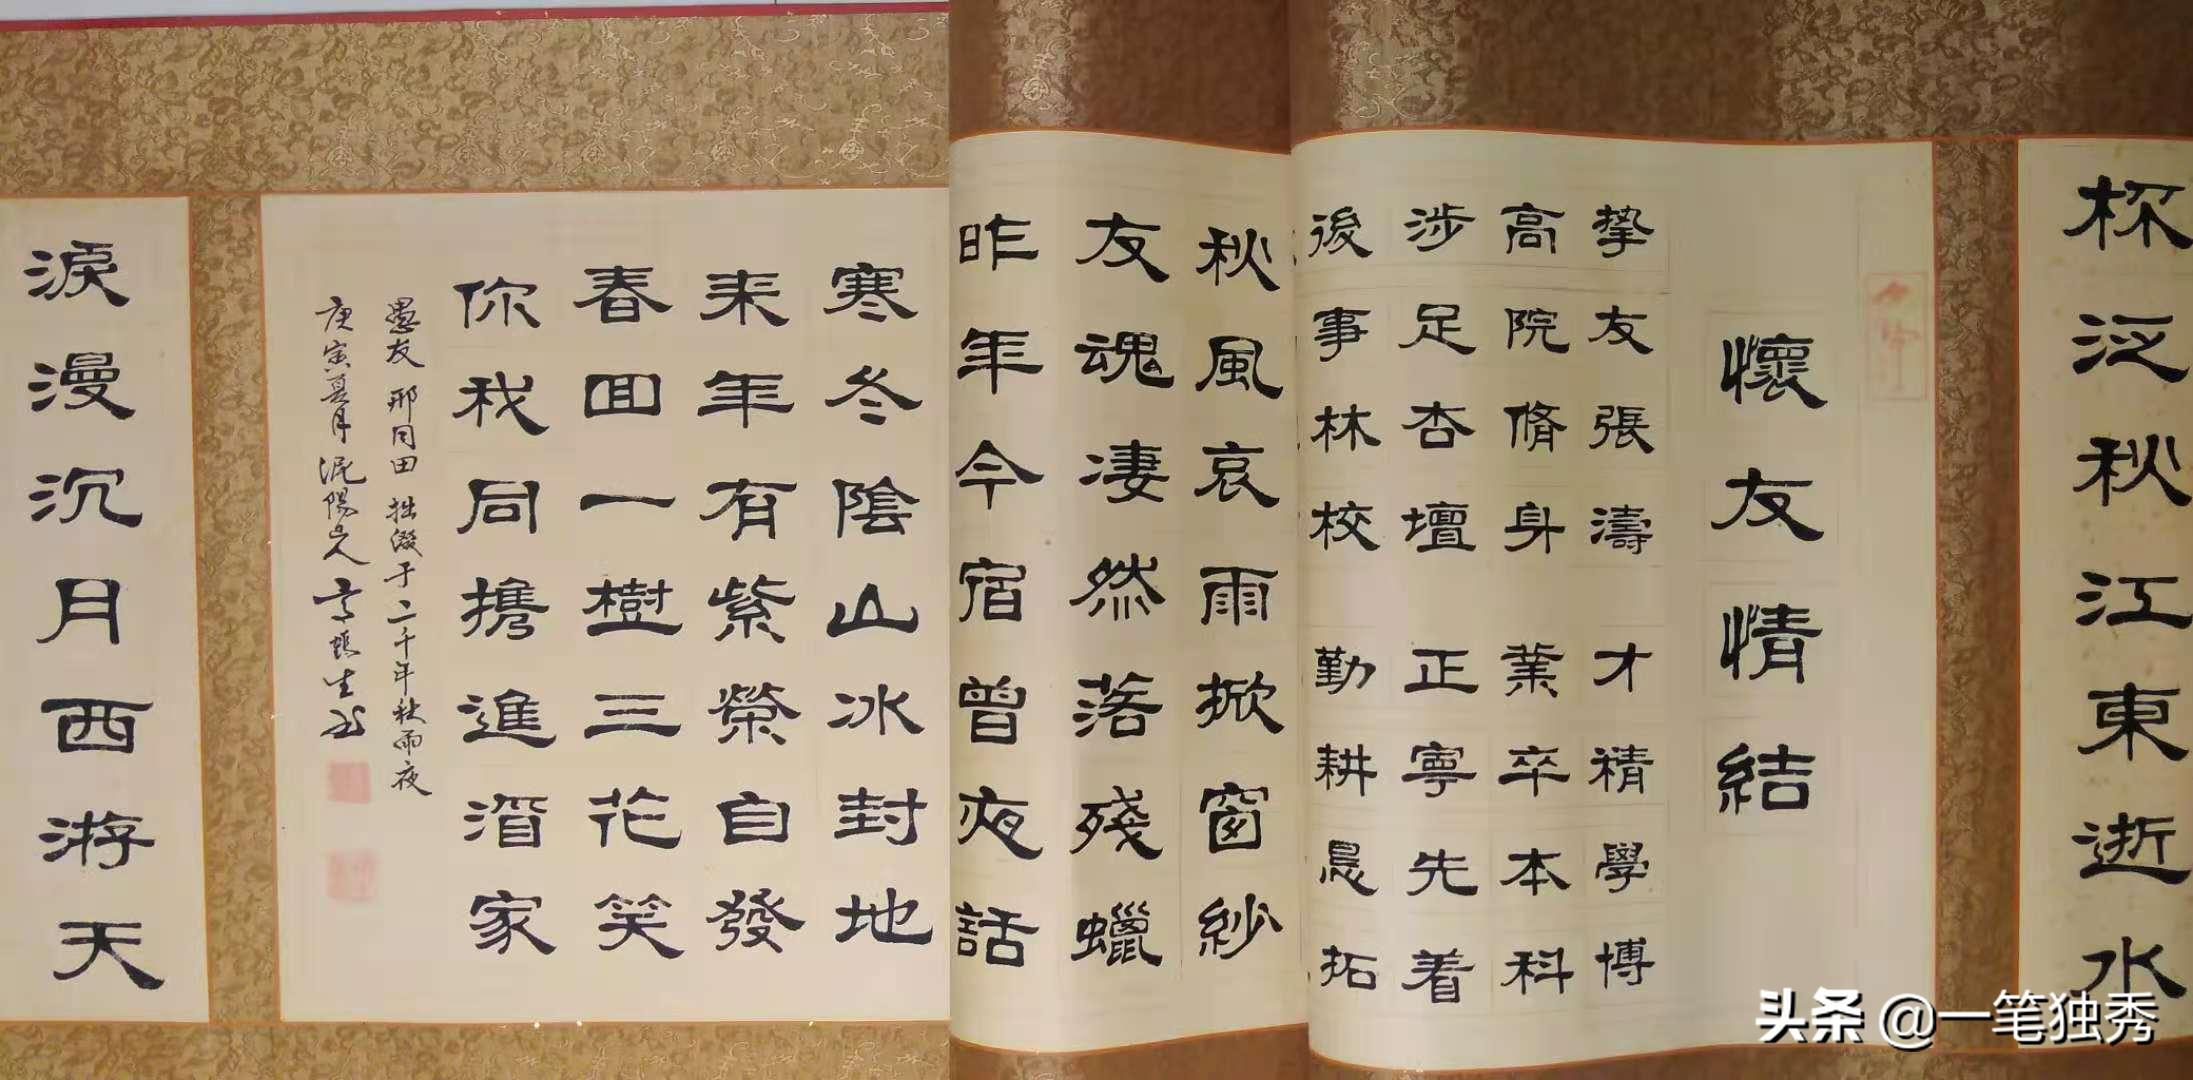 杯泛秋江東逝水
懷友情結
挚友張濤 才精學博
高院脩身 業卒本科
涉足杏壇 正寧先着
後事林校 勤耕恳拓
秋風哀雨掀窗紗
友魂凄然落殘蠟
昨年今宿曾夜話
寒冬陰山冰封地
来年有紫榮自發
春回一樹三花笑
你我同携進酒家
愚友 邢同田 拙缀于二千年秋雨夜
庚寅夏月泥陽
淚漫沉月西游天
头条 @一笔独秀